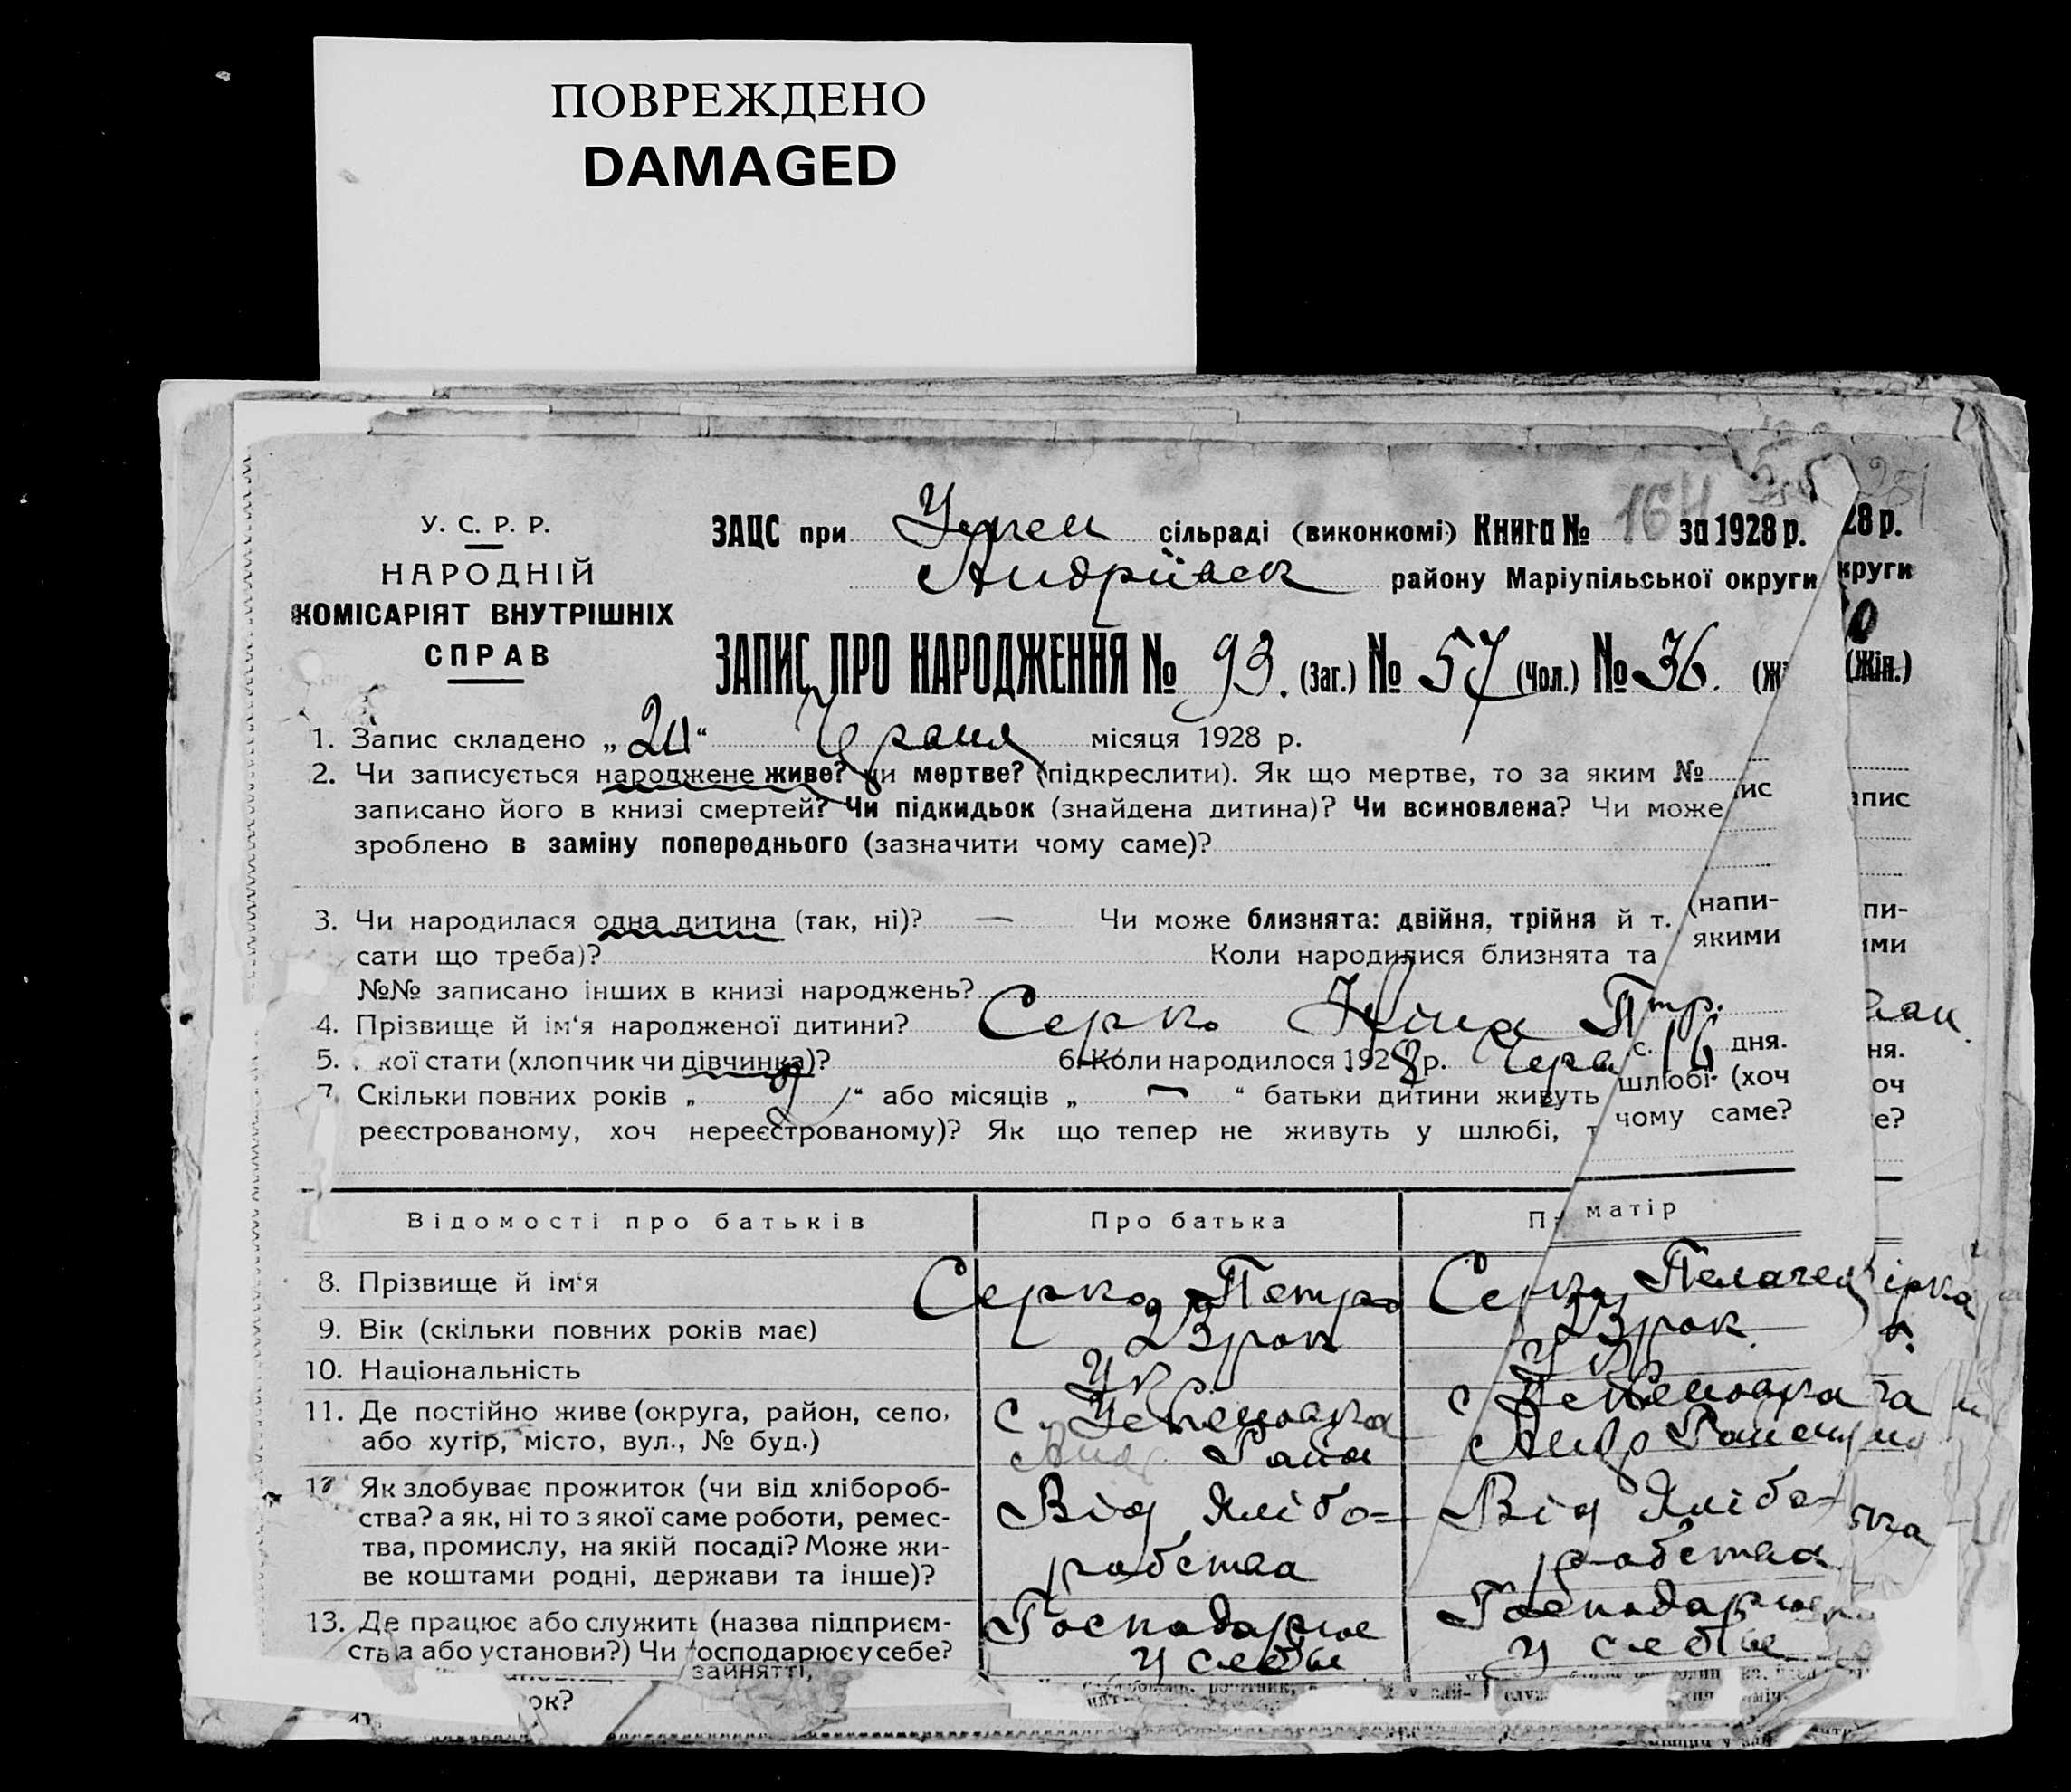 ПОВРЕЖДЕНО
DAMAGED
У. С. Р. Р.
НАРОДНІЙ
КОМІСАРІЯТ ВНУТРІШНІХ
СПРАВ
ЗАЦС при сільраді (виконкомі) Книга № 164 за 1928 р.
28 р.
Андріївск району Маріупільської округи
круги
ЗАПИС ПРО НАРОДЖЕННЯ № 93. (Заг.) № 57 (Чол.) № 36. (Ж
(Жін.)
1. Запис складено „ “ місяця 1928 р.
2. Чи записується народжене живе? чи мертве? (підкреслити). Як що мертве, то за яким №
записано його в книзі смертей? Чи підкидьок (знайдена дитина)? Чи всиновлена? Чи може ис
апис
зроблено в заміну попереднього (зазначити чому саме)?
3. Чи народилася одна дитина (так, ні)? — Чи може близнята: двійня, трійня й т. (напи-
пи-
сати що треба)? Коли народилися близнята та якими
ими
№№ записано інших в книзі народжень?
4. Прізвище й ім‘я народженої дитини? Серко Ніна Птр.
5. кої стати (хлопчик чи дівчинка)? 6. Коли народилося 1928 р. Черв с. 16 дня.
ня.
7. Скільки повних років „ 2 “ або місяців „ — “ батьки дитини живуть шлюбі (хоч
оч
реєстрованому, хоч нереєстрованому)? Як що тепер не живуть у шлюбі, т чому саме?
е?
Відомості про батьків Про батька П матір
8. Прізвище й ім‘я Серко Петро Серко Пелагея
9. Вік (скільки повних років має) 23 рок 23 рок
10. Національність Укр Укр
11. Де постійно живе (округа, район, село, с. Успеновка с Успеновка
або хутір, місто, вул., № буд.) Анд Район Андр Район
12 Як здобуває прожиток (чи від хлібороб- Від Хлібо= Від Хлібо=
ства? а як, ні то з якої саме роботи, ремес-
тва, промислу, на якій посаді? Може жи- робства робства
ве коштами родні, держави та інше)?
13. Де працює або служить (назва підприєм- Господарює Господарює
ства або установи?) Чи господарює у себе? у себе у себе
зайнятті,
ок?